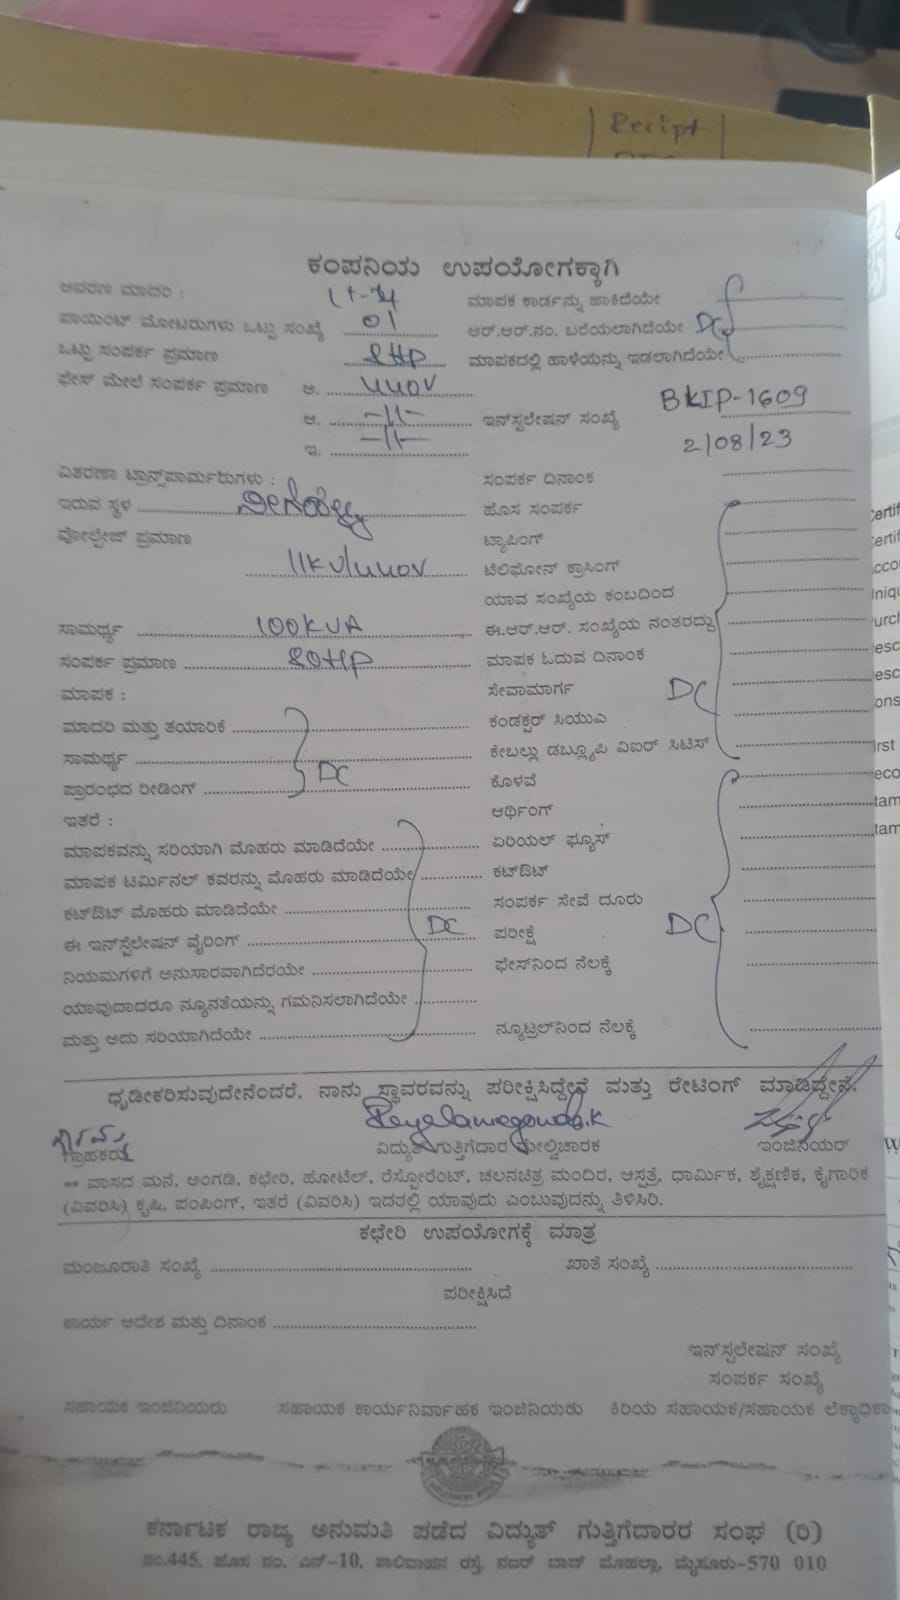 Recipt
ಕಂಪನಿಯ ಉಪಯೋಗಕ್ಕಾಗಿ
ಆವರಣ ಮಾದರಿ :
ಮಾಪಕ ಕಾರ್ಡನ್ನು ಹಾಕಿದೆಯೇ
ಪಾಯಿಂಟ್ ಮೋಟರುಗಳು ಒಟ್ಟು ಸಂಖ್ಯೆ 01 ಆರ್.ಆರ್.ನಂ. ಬರೆಯಲಾಗಿದೆಯೇ DC
ಒಟ್ಟು ಸಂಪರ್ಕ ಪ್ರಮಾಣ 8HP ಮಾಪಕದಲ್ಲಿ ಹಾಳೆಯನ್ನು ಇಡಲಾಗಿದೆಯೇ
ಫೇಸ್ ಮೇಲೆ ಸಂಪರ್ಕ ಪ್ರಮಾಣ ಅ. 440V
ಆ. -11- ಇನ್‌ಸ್ಟಲೇಷನ್ ಸಂಖ್ಯೆ BKIP-1609
ಇ. -11- 2/08/23
ವಿತರಣಾ ಟ್ರಾನ್ಸ್‌ಪಾರ್ಮರುಗಳು : ಸಂಪರ್ಕ ದಿನಾಂಕ
ಇರುವ ಸ್ಥಳ ಹೊಸ ಸಂಪರ್ಕ
ವೋಲ್ಟೇಜ್ ಪ್ರಮಾಣ ಟ್ಯಾಪಿಂಗ್
11KV/440V ಟೆಲಿಫೋನ್ ಕ್ರಾಸಿಂಗ್
ಯಾವ ಸಂಖ್ಯೆಯ ಕಂಬದಿಂದ
ಸಾಮರ್ಥ್ಯ 100KVA ಈ.ಆರ್.ಆರ್. ಸಂಖ್ಯೆಯ ನಂತರದ್ದು
ಸಂಪರ್ಕ ಪ್ರಮಾಣ 80HP ಮಾಪಕ ಓದುವ ದಿನಾಂಕ
ಮಾಪಕ : ಸೇವಾಮಾರ್ಗ DC
ಮಾದರಿ ಮತ್ತು ತಯಾರಿಕೆ ಕಂಡಕ್ಟರ್ ಸಿಯುಎ
ಸಾಮರ್ಥ್ಯ ಕೇಬಲ್ಲು ಡಬ್ಲ್ಯೂಪಿ ವಿಐರ್ ಸಿಟಿಸ್
ಪ್ರಾರಂಭದ ರೀಡಿಂಗ್ DC ಕೊಳವೆ
ಇತರೆ : ಆರ್ಥಿಂಗ್
ಮಾಪಕವನ್ನು ಸರಿಯಾಗಿ ಮೊಹರು ಮಾಡಿದೆಯೇ ಏರಿಯಲ್ ಫ್ಯೂಸ್
ಮಾಪಕ ಟರ್ಮಿನಲ್ ಕವರನ್ನು ಮೊಹರು ಮಾಡಿದೆಯೇ ಕಟ್‌ಔಟ್
ಕಟ್‌ಔಟ್ ಮೊಹರು ಮಾಡಿದೆಯೇ ಸಂಪರ್ಕ ಸೇವೆ ದೂರು
ಈ ಇನ್‌ಸ್ಟೆಲೇಷನ್ ವೈರಿಂಗ್ DC ಪರೀಕ್ಷೆ DC
ನಿಯಮಗಳಿಗೆ ಅನುಸಾರವಾಗಿದೆರಯೇ ಫೇಸ್‌ನಿಂದ ನೆಲಕ್ಕೆ
ಯಾವುದಾದರೂ ನ್ಯೂನತೆಯನ್ನು ಗಮನಿಸಲಾಗಿದೆಯೇ
ಮತ್ತು ಅದು ಸರಿಯಾಗಿದೆಯೇ ನ್ಯೂಟ್ರಲ್‌ನಿಂದ ನೆಲಕ್ಕೆ
ಧೃಡೀಕರಿಸುವುದೇನೆಂದರೆ, ನಾನು ಸ್ಥಾವರವನ್ನು ಪರೀಕ್ಷಿಸಿದ್ದೇನೆ ಮತ್ತು ರೇಟಿಂಗ್ ಮಾಡಿದ್ದೇನೆ.
ಗ್ರಾಹಕರು ವಿದ್ಯುತ್ ಗುತ್ತಿಗೆದಾರ ಮೇಲ್ವಿಚಾರಕ ಇಂಜಿನಿಯರ್
** ವಾಸದ ಮನೆ, ಅಂಗಡಿ, ಕಛೇರಿ, ಹೋಟೆಲ್, ರೆಸ್ಟೋರೆಂಟ್, ಚಲನಚಿತ್ರ ಮಂದಿರ, ಆಸ್ಪತ್ರೆ, ಧಾರ್ಮಿಕ, ಶೈಕ್ಷಣಿಕ, ಕೈಗಾರಿಕ
(ವಿವರಿಸಿ) ಕೃಷಿ, ಪಂಪಿಂಗ್, ಇತರೆ (ವಿವರಿಸಿ) ಇದರಲ್ಲಿ ಯಾವುದು ಎಂಬುವುದನ್ನು ತಿಳಿಸಿರಿ.
ಕಛೇರಿ ಉಪಯೋಗಕ್ಕೆ ಮಾತ್ರ
ಮಂಜೂರಾತಿ ಸಂಖ್ಯೆ ಖಾತೆ ಸಂಖ್ಯೆ
ಪರೀಕ್ಷಿಸಿದೆ
ಕಾರ್ಯ ಆದೇಶ ಮತ್ತು ದಿನಾಂಕ
ಇನ್‌ಸ್ಟಲೇಷನ್ ಸಂಖ್ಯೆ
ಸಂಪರ್ಕ ಸಂಖ್ಯೆ
ಸಹಾಯಕ ಇಂಜಿನಿಯರು ಸಹಾಯಕ ಕಾರ್ಯನಿರ್ವಾಹಕ ಇಂಜಿನಿಯರು ಕಿರಿಯ ಸಹಾಯಕ/ಸಹಾಯಕ ಲೆಕ್ಕಾಧಿಕಾ
ಕರ್ನಾಟಕ ರಾಜ್ಯ ಅನುಮತಿ ಪಡೆದ ವಿದ್ಯುತ್ ಗುತ್ತಿಗೆದಾರರ ಸಂಘ (ರಿ)
ನಂ.445, ಹೊಸ ನಂ. ಎನ್-10, ಶಾಲಿವಾಹನ ರಸ್ತೆ, ನಜರ್ ಬಾದ್ ಮೊಹಲ್ಲಾ, ಮೈಸೂರು-570 010